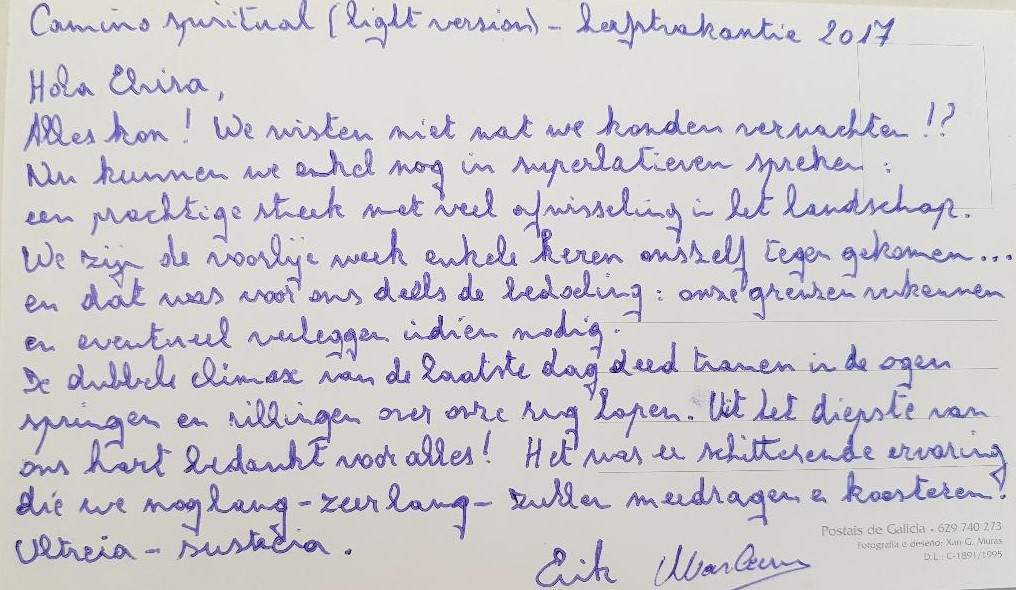 Camino spiritual (light version) - herfstvakantie 2017
Hola Elvira,
Alles kon! We wisten niet wat we konden verwachten !?
Nu kunnen we enkel nog in superlatieven spreken :
een prachtige streek met veel afwisseling in het landschap.
We zijn de voorbije week enkele keren onszelf tegen gekomen ...
en dat was voor ons deels de bedoeling : onze grenzen verkennen
en eventueel verleggen indien nodig.
De dubbele climax van de laatste dag deed tranen in de ogen
springen en rillingen over onze rug lopen. Uit het diepste van
ons hart bedankt voor alles! Het was een schitterende ervaring
die we nog lang - zeer lang - zullen meedragen en koesteren!
Ultreia - suseia.
Erik
Postais de Galicia • 629 740 273
Fotografía e deseño: Xan G. Muras
D.L.: C-1891/1995